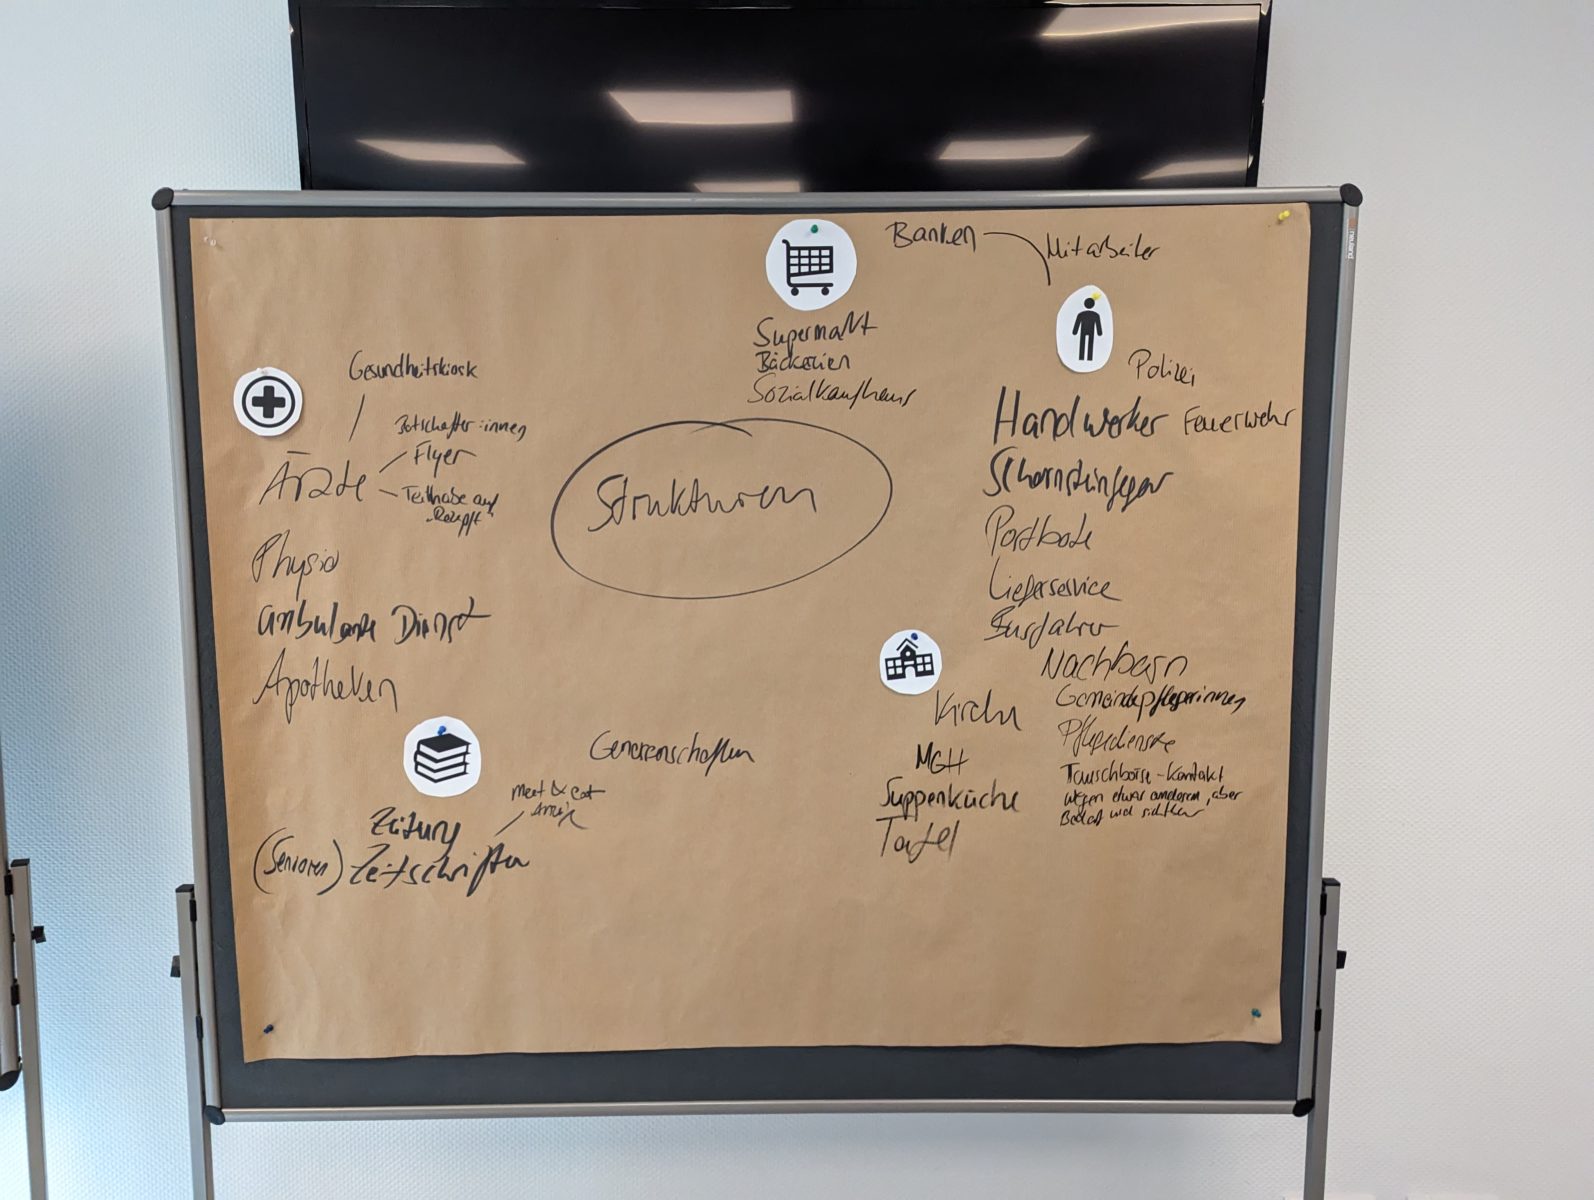 Banken
Mitarbeiter
Supermarkt
Bäckereien
Sozialkaufhaus
Gesundheitskiosk
Botschafter:innen
Flyer
Ärzte
Teilhabe auf
"Rezept"
Physio
ambulante Dienst
Apotheken
Strukturen
Polizei
Handwerker
Feuerwehr
Schornsteinfeger
Postbote
Lieferservice
Busfahrer
Nachbarn
Gemeindepflegerinnen
Pflegedienste
Tauschbörse - Kontakt
wegen etwas anderem, aber
Bedarf wird sichtbar
Kirche
MGH
Suppenküche
Tafel
Genossenschaften
meet & eat
Zeitung
(Senioren) Zeitschriften
neuland